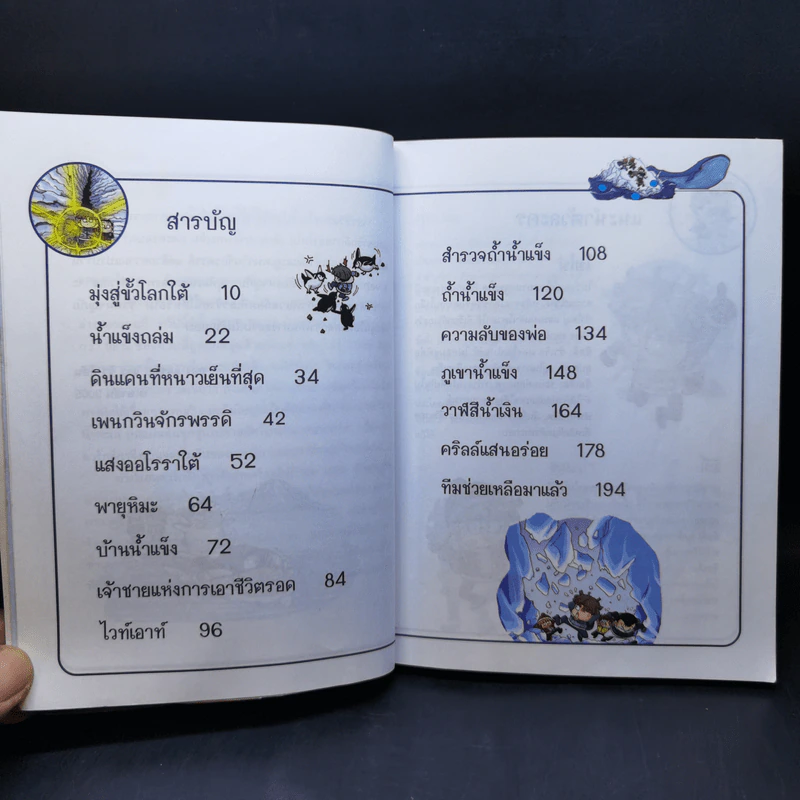 สารบัญ
มุ่งสู่ขั้วโลกใต้ 10
น้ำแข็งถล่ม 22
ดินแดนที่หนาวเย็นที่สุด 34
เพนกวินจักรพรรดิ 42
แสงออโรราใต้ 52
พายุหิมะ 64
บ้านน้ำแข็ง 72
เจ้าชายแห่งการเอาชีวิตรอด 84
ไวท์เอาท์ 96
สำรวจถ้ำน้ำแข็ง 108
ถ้ำน้ำแข็ง 120
ความลับของพ่อ 134
ภูเขาน้ำแข็ง 148
วาฬสีน้ำเงิน 164
คริลล์แสนอร่อย 178
ทีมช่วยเหลือมาแล้ว 194